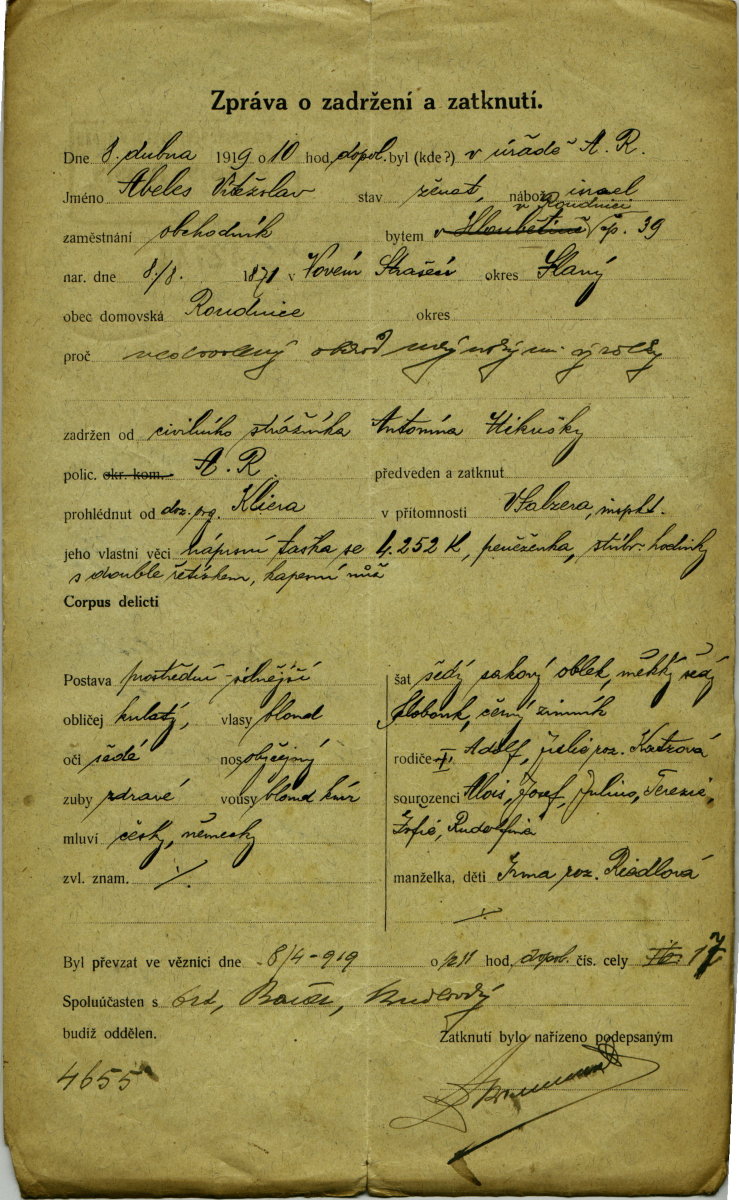 Zpráva o zadržení a zatknutí.
Dne 8. dubna 1919 o 10 hod. dopol. byl (kde?) v úřadě A. R.
Jméno Abeles Vítězslav stav ženat, nábož. israel
v Roudnici
zaměstnání obchodník bytem v Hloubětíně čp. 39
nar. dne 8/8. 1871 v Novém Strašecí okres Slaný
obec domovská Roudnice okres
proč nedovolený obchod
zadržen od civilního strážníka Antonína
polic. okr. kom. A. R.
předveden a zatknut
prohlédnut od doz. prg. Kliera v přítomnosti VSalzera, inspkt.
jeho vlastní věci náprsní taška se 4.252 K, peněženka, stříbr. hodinky
s double řetízkem, kapesní nůž
Corpus delicti
Postava prostřední - silnější
obličej kulatý, vlasy blond
oči šedé nos obyčejný
zuby zdravé vousy blond knír
mluví česky, německy
zvl. znam. ./.
šat šedý sakový oblek, měkký šedý
klobouk, černý zimník
rodiče Adolf, Julie roz. Katzová
sourozenci Alois, Josef, Julius, Terezie,
Žofie, Rudolfina
manželka, děti Irma roz. Riedlová
./.
Byl převzat ve věznici dne 8/4 - 919 o 1/2 11 hod. dopol. čís. cely 17
Spoluúčasten s
budiž oddělen.
Zatknutí bylo nařízeno podepsaným
4655